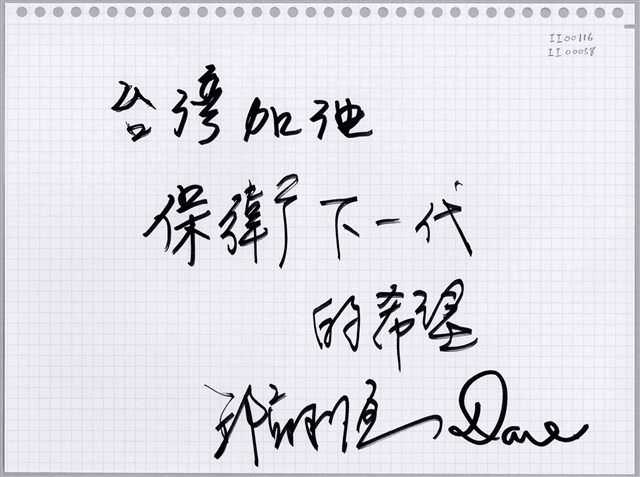 II00116
II00058
台灣加油
保衛下一代
的希望
Dave